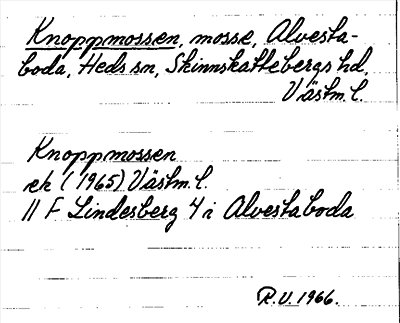 Knoppmossen, mosse, Alvesta-
boda, Heds sn, Skinnskattebergs hd,
Västm. l.
Knoppmossen
ek (1965) Västm. l.
11 F Lindesberg 4 i Alvestaboda
R.V. 1966.